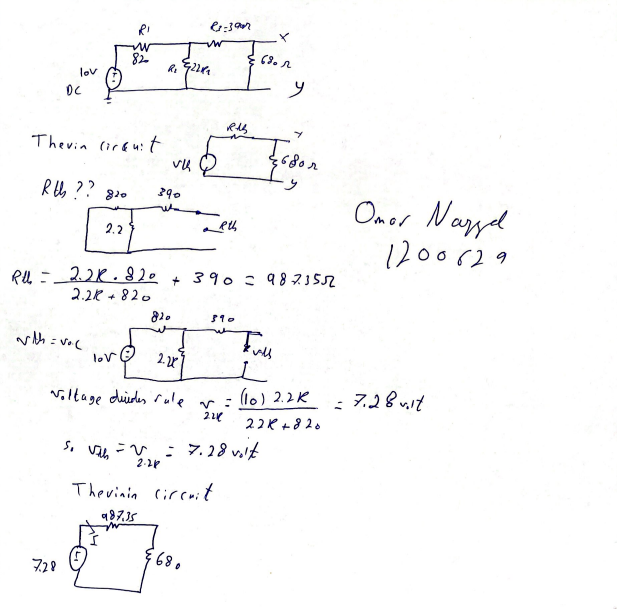 R1 R3=390Ω x
82 680Ω
10V R2 2.2K
DC y
Thevin circuit Rth x
Vth 680Ω
y
Rth ?? 820 390
2.2 Rth
Omar
1200629
Rth = 2.2K . 820 / 2.2K + 820 + 390 = 987.35Ω
820 390
Vth = Voc 10V 2.2K Vth
Voltage divider rule V 2.2K = (10) 2.2K / 2.2K + 820 = 7.28 volt
So Vth = V 2.2K = 7.28 volt
Thevinin circuit
987.35
I
7.28 680